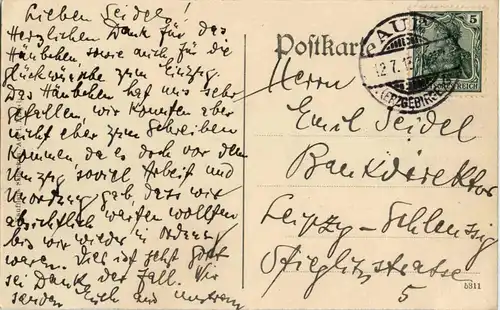 Lieben Seidels!
Herzlichen Dank für das
Häubchen, sowie auch für die
Glückwünsche zum Einzug.
Das Häubchen hat uns sehr
gefallen, wir konnten aber
nicht eher zum Schreiben
kommen da es doch vor dem
Umzug soviel Arbeit und
Unordnung gab, dass wir
absichtlich warten wollten
bis wir wieder in Ordnung
waren. Dies ist jetzt Gott
sei Dank der Fall. Wir
senden Euch und
Postkarte
AUE
12.7.
(ERZGEBIRGE)
5
REICH
Herrn
Emil Seidel
Bankdirektor
Leipzig-Schleussig
Stieglitzstrasse
5
b311